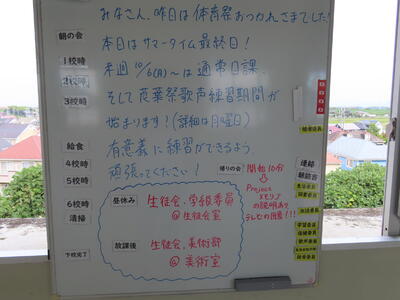 みなさん、昨日は体育祭おつかれさまでした!
本日はサマータイム最終日!
来週10/6(月)〜は通常日課
そして
葉祭歌声練習期間が
始まります!(詳細は月曜日)
有意義に練習ができるよう
頑張ってください!
朝の会
1校時
2校時
3校時
給食
4校時
5校時
6校時
清掃
下校完了
帰りの会
昼休み
生徒会、学級委員
@生徒会室
放課後
生徒会、美術部
@美術室
開始10分
Project
の説明あり
テレビの用意!!!
連絡